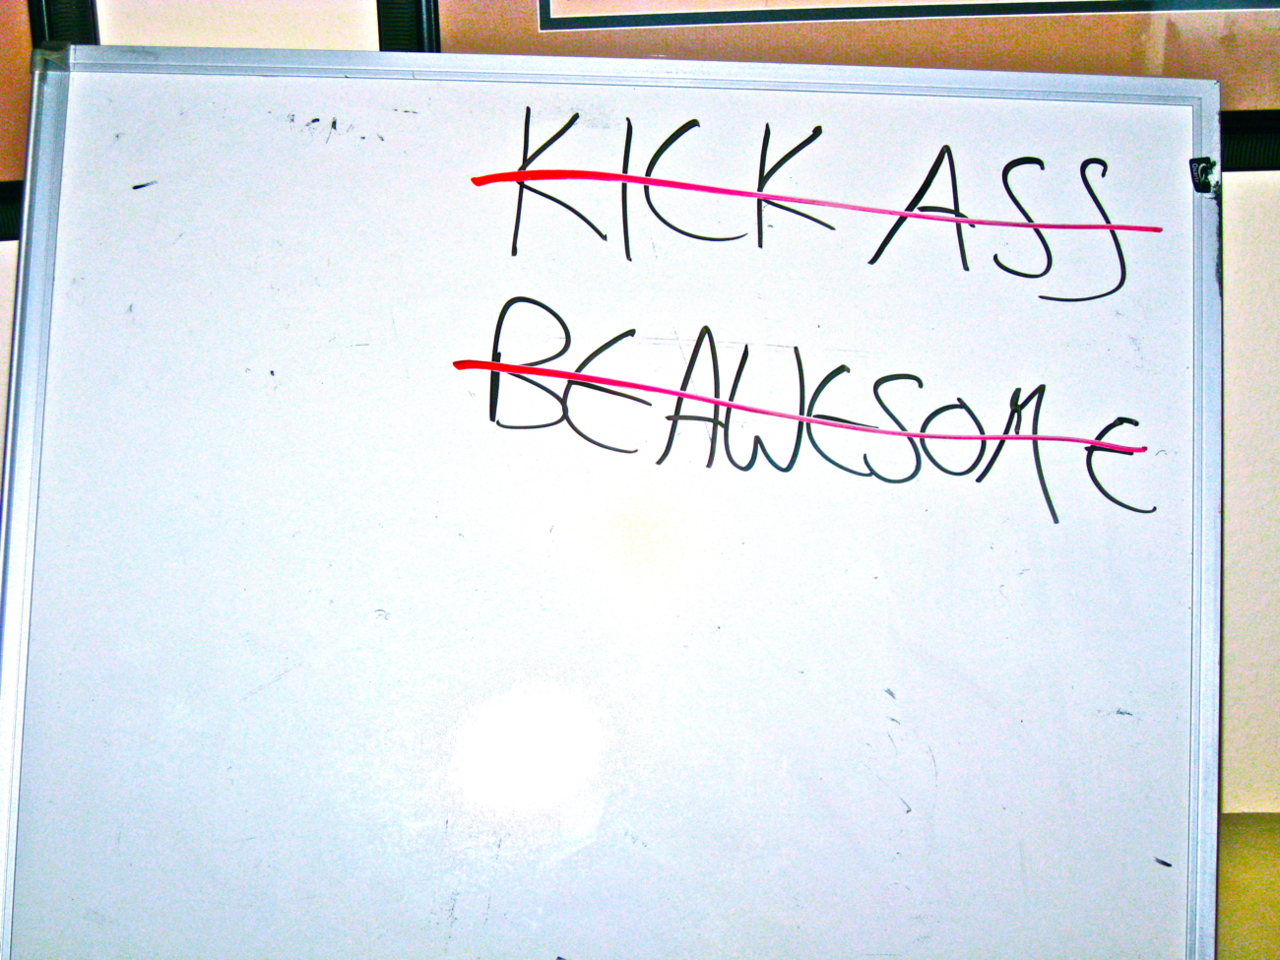 KICK ASS
BE AWESOME